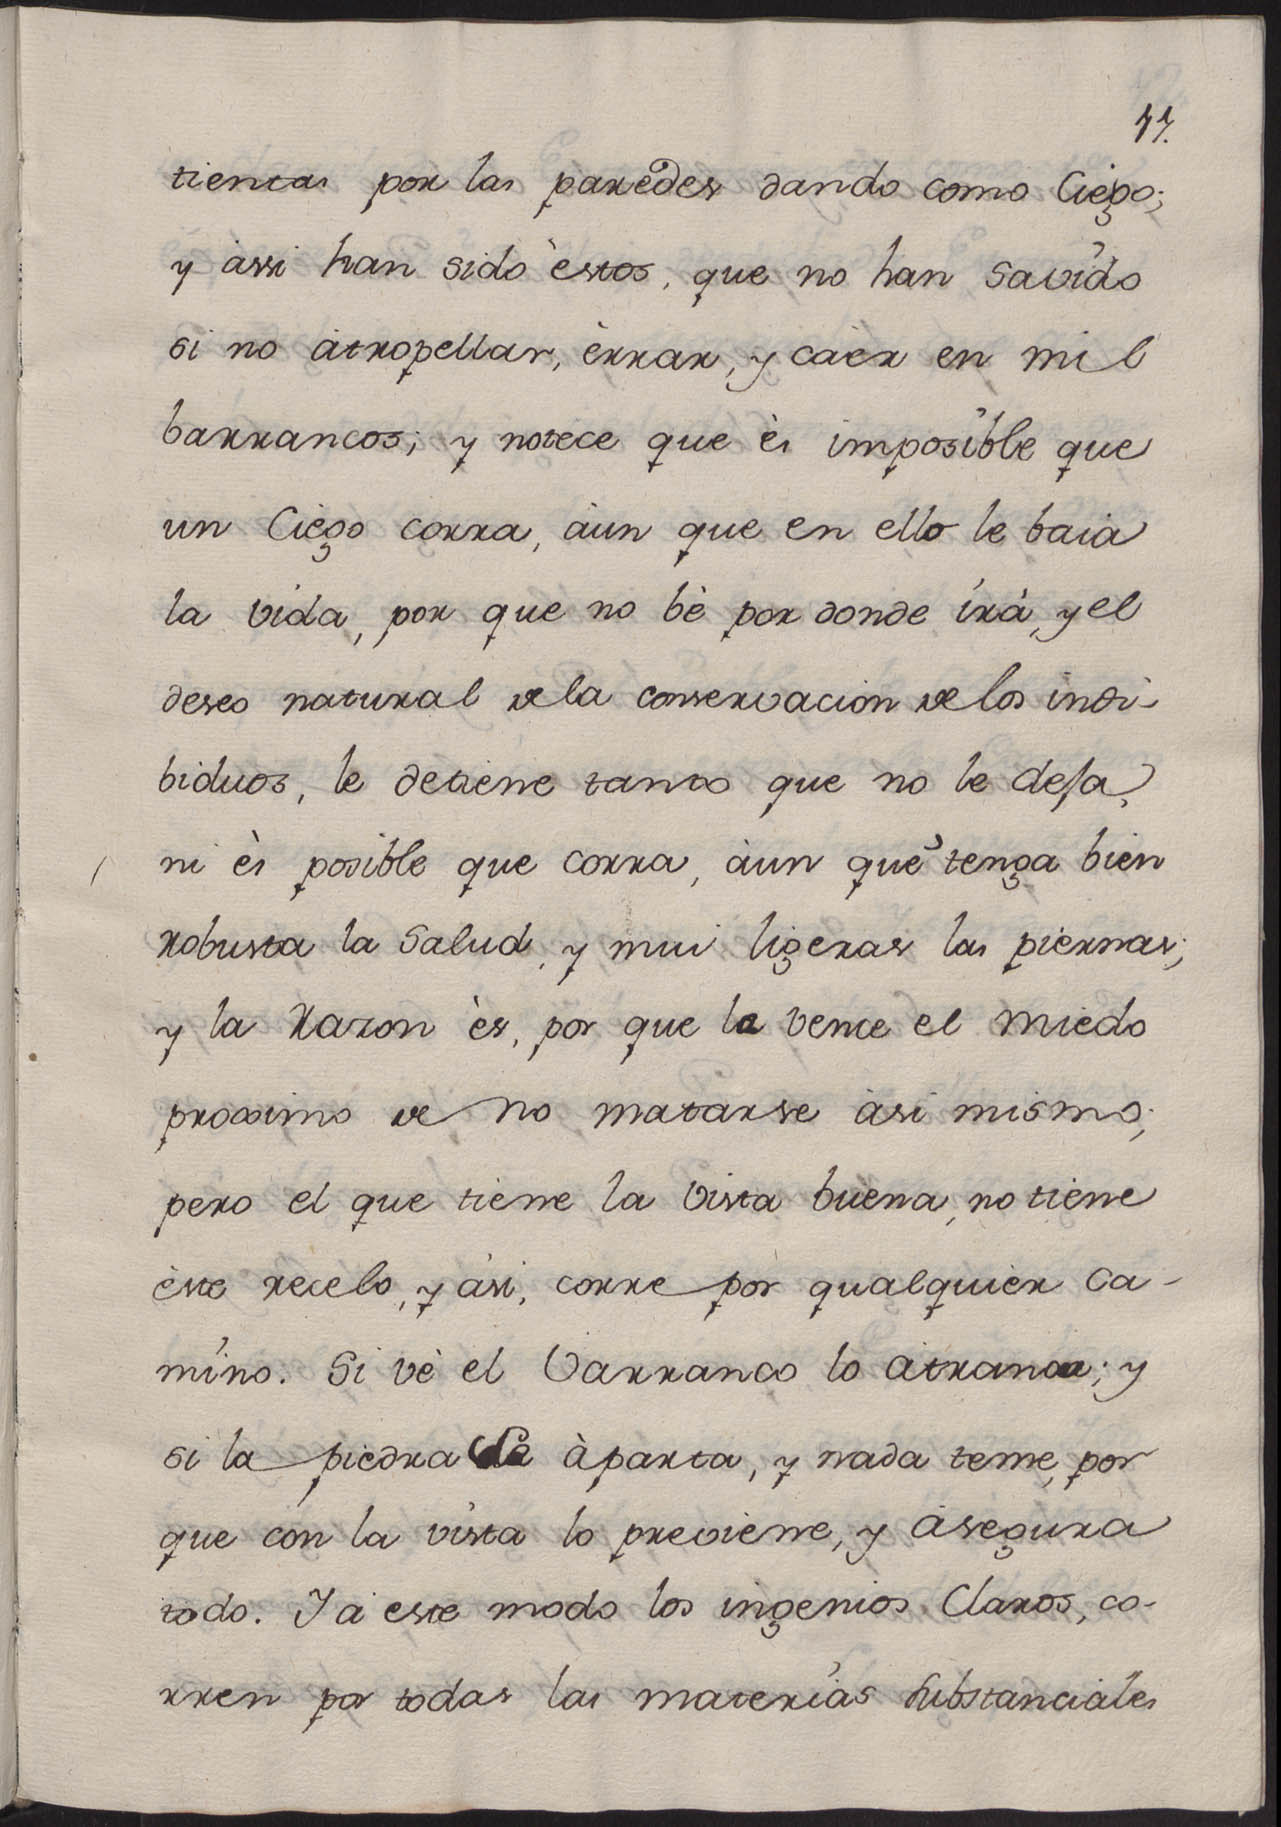 17.
tientas por las paredes dando como Ciego;
y àssi han sido èstos, que no han savido
si no àtropellar, èrrar, y caèr en mil
barrancos; y notece que ès imposible que
un Ciego corra, àun que en ello le baia
la vida, por que no bè por donde irà, y el
deseo natural de la conservacion de los indi-
biduos, le detiene tanto que no le deja,
ni ès posible que corra, àun que tenga bien
robusta la salud, y mui ligeras las piernas;
y la Razon ès, por que le vence el miedo
proximo de no matarse àsi mismo;
pero el que tiene la vista buena, no tiene
èste recelo, y àsi, corre por qualquier ca-
mino. Si vè el Varranco lo atranca; y
si la piedra la àparta, y nada teme, por
que con la vista lo previene, y àsegura
todo. Y à este modo los ingenios Claros, co-
rren por todas las materias substanciales